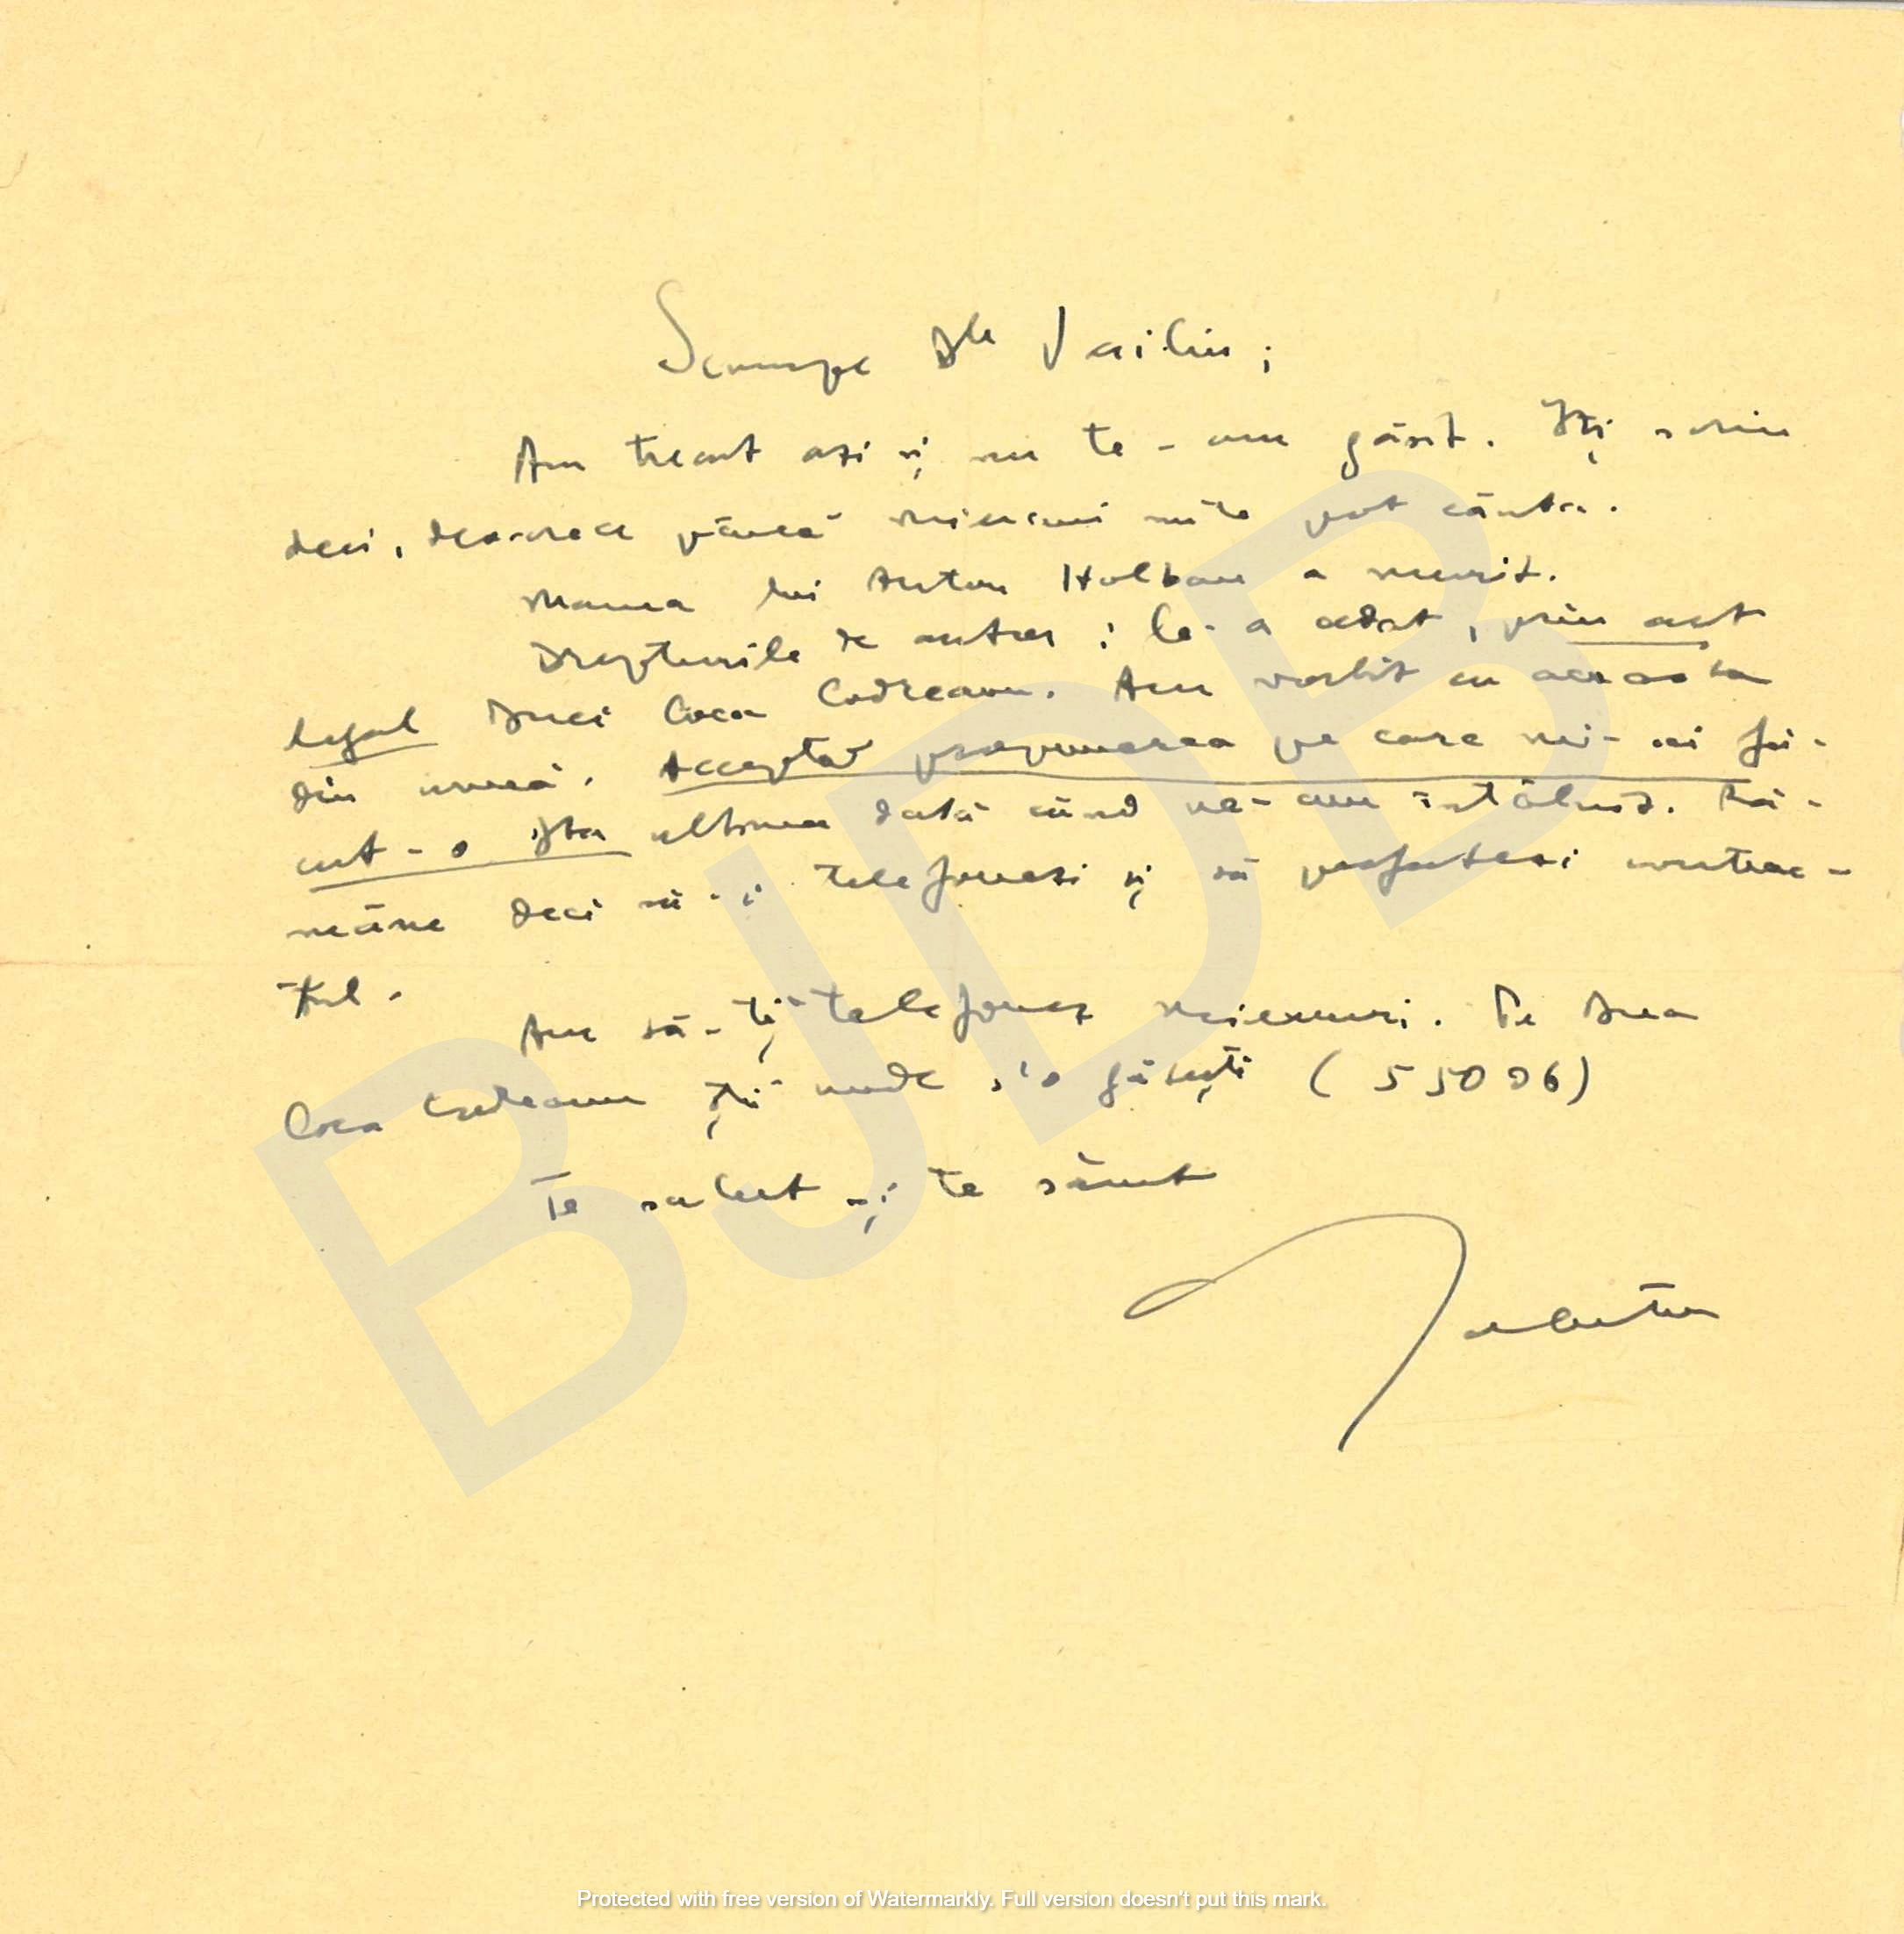 Scumpe Dle Vasiliu;
Am trecut azi și nu te-am găsit. Iți scriu
deci, deoarece până miercuri nu te pot căuta.
Mama lui Anton Holban a murit.
Drepturile de autor i le-a cedat, prin act
legal Dnei Coca Codreanu. Am vorbit cu aceasta
din urmă. Acceptă propunerea pe care mi-ai fă-
cut-o Dta ultima dată când ne-am întâlnit. Ră-
mâne deci să-i telefonezi și să perfectezi contrac-
tul.
Am să-ți telefonez miercuri. Pe Dna
Coca Codreanu știi unde s'o găsești (55096)
Te salut și te sânt
BJDB
Protected with free version of Watermarkly. Full version doesn't put this mark.